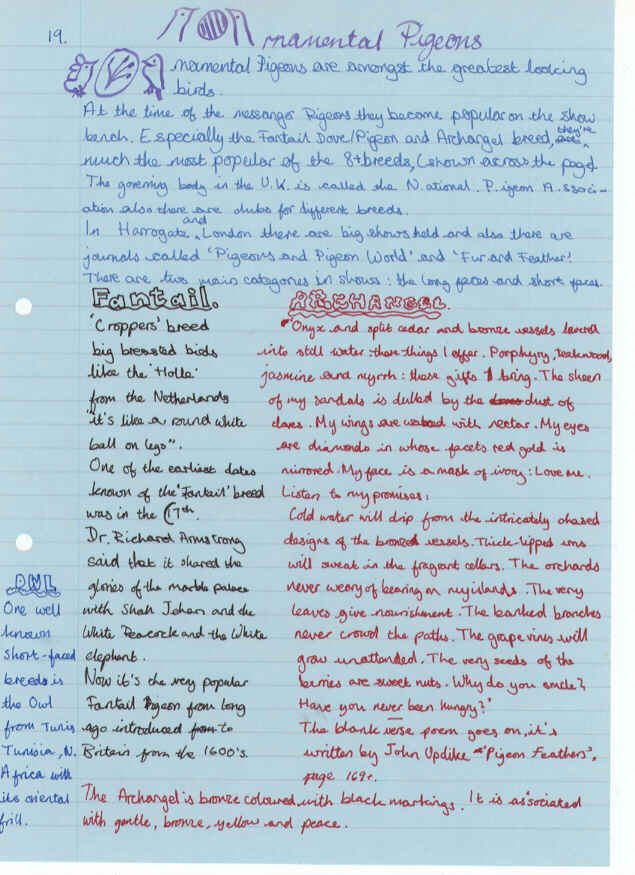 19.
Ornamental Pigeons
Ornamental Pigeons are amongst the greatest looking
birds.
At the time of the messanger Pigeons they become popular on the show
bench. Especially the Fantail Dove/Pigeon and Archangel breed, they're
much the most popular of the 8+breeds, (shown across the page)
The governing body in the U.K. is called the N.ational. P.igeon A.ssoci-
ation also there are clubs for different breeds.
In Harrogate and London there are big shows held and also there are
journals called 'Pigeons and Pigeon World' and 'Fur and Feather!
There are two main categories in shows: the long faces and short faces.
Fantail.
'Croppers' breed
big breasted birds
like the 'Holle'
from the Netherlands
"it's like a round white
ball on legs".
One of the earliest dates
known of the 'Fantail' breed
was in the 17th.
Dr. Richard Armstrong
said that it shared the
glories of the marble palace
with Shah Jehan and the
White Peacock and the White
elephant.
Now it's the very popular
Fantail Pigeon from long
ago introduced to
Britain from the 1600's.
ARCHANGEL.
"Onyx and split cedar and bronze vessels lowered
into still water these things I offer. Porphyry, teakwood,
jasmine and myrrh: these gifts I bring. The sheen
of my sandals is dulled by the dust of
cloves. My wings are waxed with nectar. My eyes
are diamonds in whose facets red gold is
mirrored. My face is a mask of ivory: Love me.
Listen to my promises:
Cold water will drip from the intricately chased
designs of the bronze vessels. Thick-lipped urns
will sweat in the fragrant cellars. The orchards
never weary of bearing on my islands. The very
leaves give nourishment. The banked branches
never crowd the paths. The grape vines will
grow unattended. The very seeds of the
berries are sweet nuts. Why do you smile?
Have you never been hungry?"
The blank verse poem goes on, it's
written by John Updike "Pigeon Feathers",
page 169.
OWL
One well
known
short-faced
breeds is
the Owl
from Tunis
Tunisia, N.
Africa with
its oriental
frill.
The Archangel is bronze coloured with black markings. It is associated
with gentle, bronze, yellow and peace.